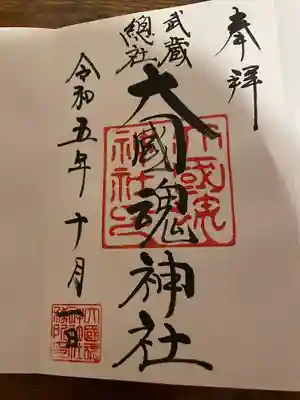 奉拝
武蔵
總社
大國魂神社
令和五年十月一日
大國魂
神社印